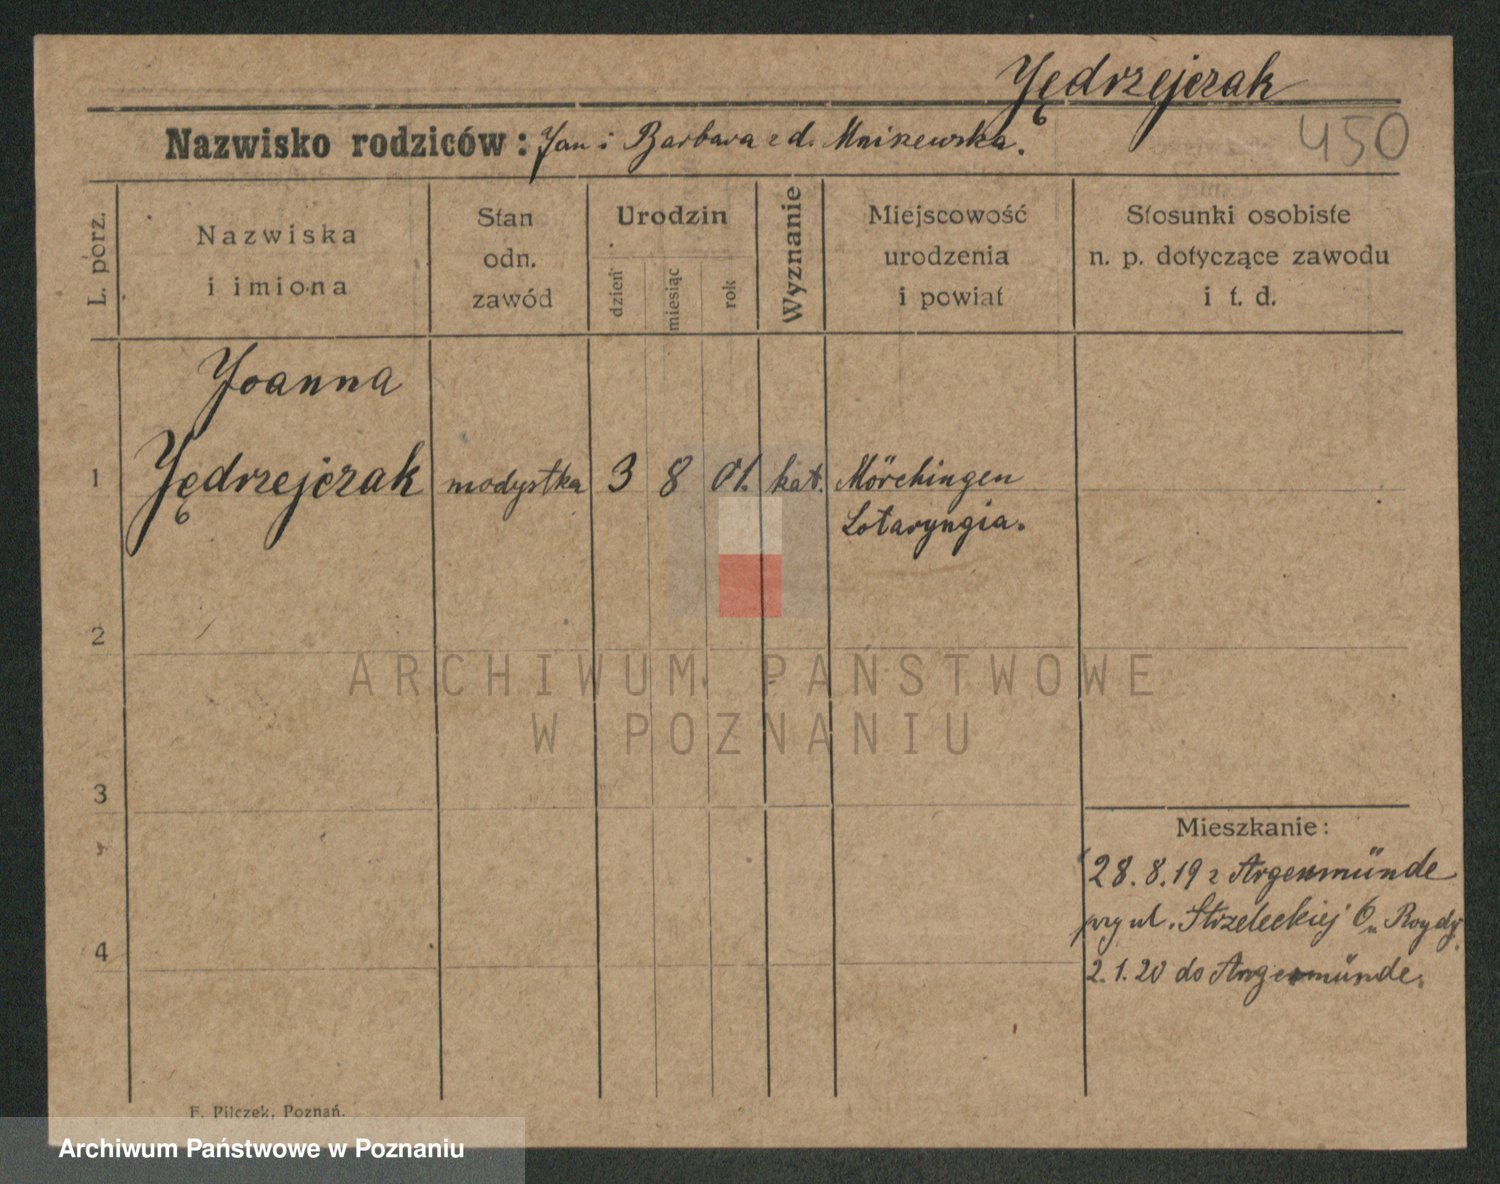 Jędrzejczak
450
Nazwisko rodziców: Jan i Barbara z d. Mniszewska.
L. porz.
Nazwiska
i imiona
Stan
odn.
zawód
Urodzin
dzień
miesiąc
rok
Wyznanie
Miejscowość
urodzenia
i powiat
Stosunki osobiste
n. p. dotyczące zawodu
i t. d.
Joanna
1 Jędrzejczak modystka 3 8 01. kat. Mörchingen
Lotaryngia.
2
ARCHIWUM PAŃSTWOWE
W POZNANIU
3
Mieszkanie:
28. 8. 19 z Argenmünde
przy ul. Strzeleckiej 6
4
2. 1. 20 do Angermünde.
F. Pilczek, Poznań.
Archiwum Państwowe w Poznaniu